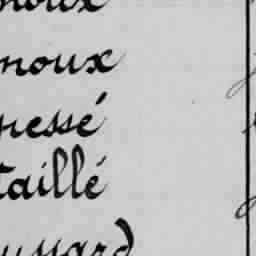 noux
noux
nessé
taillé
ussard